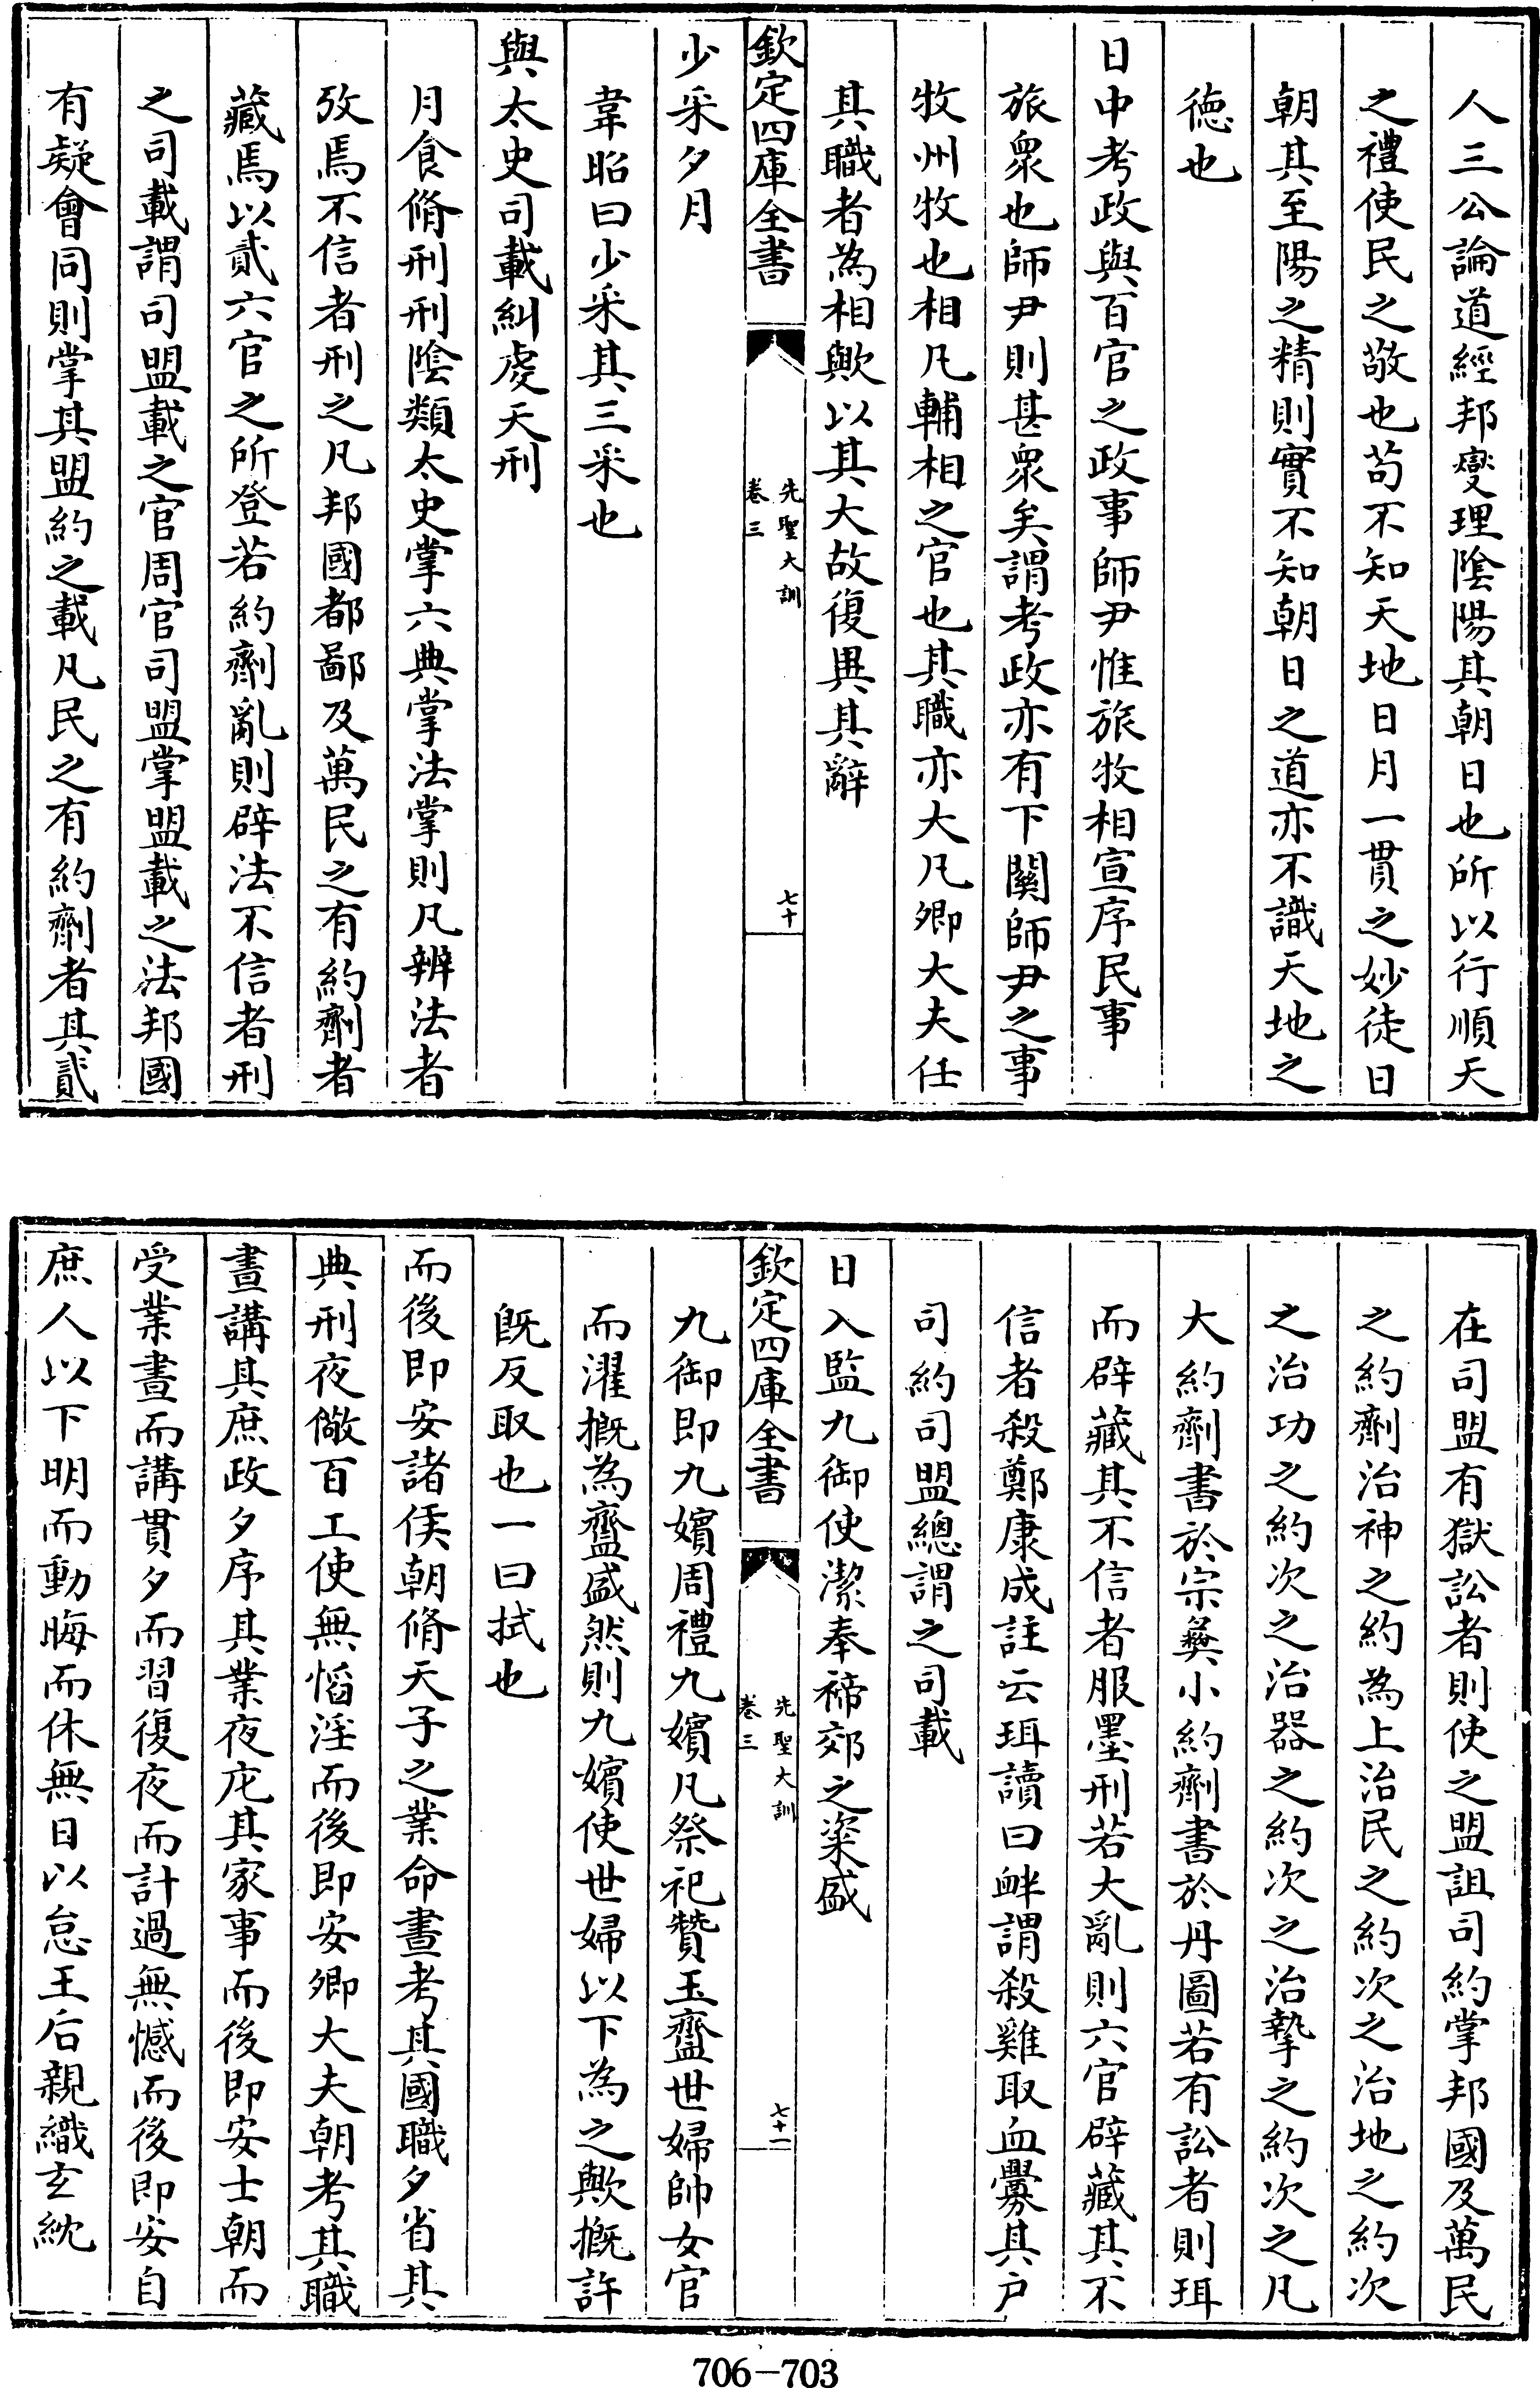 人三公論道經邦燮理隂陽其朝日也所以行順天
之禮使民之敬也茍不知天地日月一貫之妙徒日
朝其至陽之精則實不知朝日之道亦不識天地之
德也
日中考政與百官之政事師尹惟旅牧相宣序民事
旅衆也師尹則甚衆矣謂考政亦有下闗師尹之事
牧州牧也相凡輔相之官也其職亦大凡卿大夫任
其職者為相歟以其大故復異其辭
欽定四庫全書
先聖大訓
卷三
七十
少采夕月
韋昭曰少采其三采也
與太史司載糾虔天刑
月食脩刑刑隂類太史掌六典掌法掌則凡辨法者
攷焉不信者刑之凡邦國都鄙及萬民之有約劑者
藏焉以貳六官之所登若約劑亂則辟法不信者刑
之司載謂司盟載之官周官司盟掌盟載之法邦國
有疑會同則掌其盟約之載凡民之有約劑者其貳
在司盟有獄訟者則使之盟詛司約掌邦國及萬民
之約劑治神之約為上治民之約次之治地之約次
之治功之約次之治器之約次之治摯之約次之凡
大約劑書於宗彝小約劑書於丹圖若有訟者則珥
而辟藏其不信者服墨刑若大亂則六官辟藏其不
信者殺鄭康成註云珥讀曰衈謂殺雞取血釁其户
司約司盟總謂之司載
日入監九御使潔奉禘郊之粢盛
欽定四庫全書
先聖大訓
卷三
七十一
九御即九嬪周禮九嬪凡祭祀贊玉齍世婦帥女官
而濯摡為齍盛然則九嬪使世婦以下為之歟摡許
旣反取也一曰拭也
而後即安諸侯朝脩天子之業命晝考其國職夕省其
典刑夜儆百工使無慆淫而後即安卿大夫朝考其職
晝講其庶政夕序其業夜庀其家事而後即安士朝而
受業晝而講貫夕而習復夜而計過無憾而後即安自
庶人以下明而動晦而休無日以怠王后親織玄紞
706—703